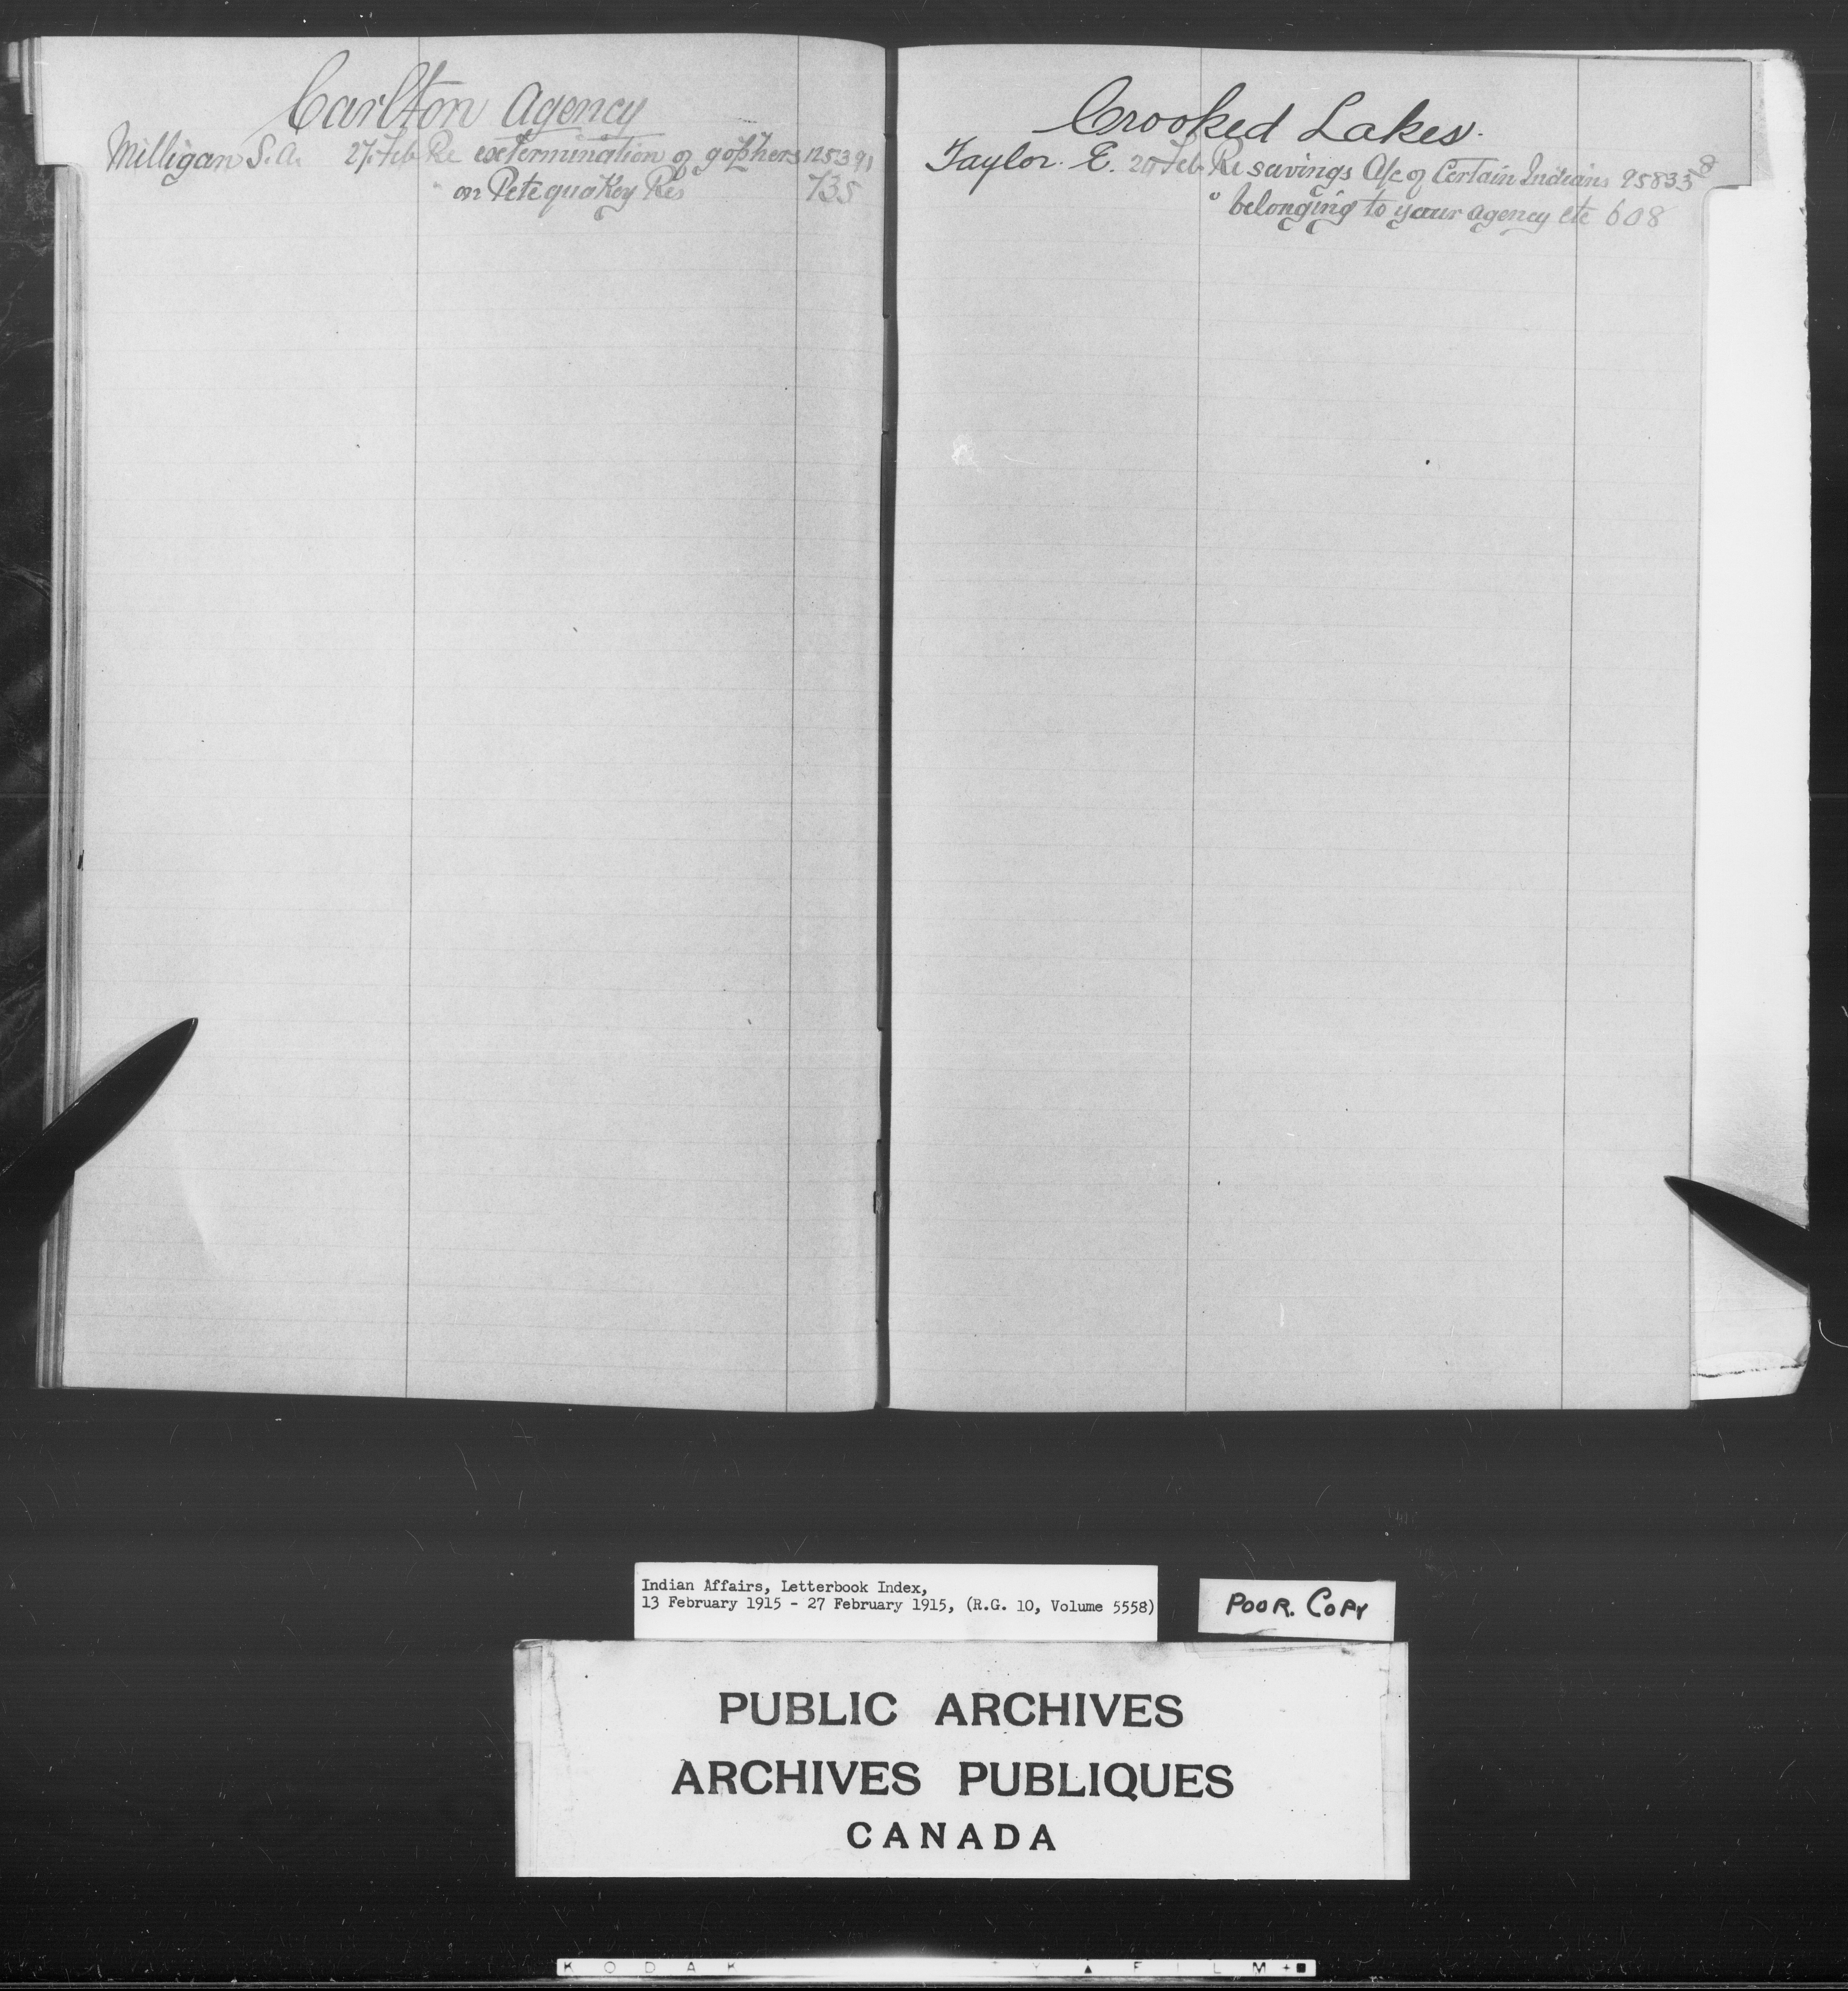 Carlton Agency
Milligan S. A. 27 Feb Re extermination of gophers 125391
" on Petequakey Res 735
Crooked Lakes.
Taylor. E. Feb Re savings A/c of Certain Indians 95833 8
" belonging to your agency etc 608
Indian Affairs, Letterbook Index,
13 February 1915 - 27 February 1915, (R.G. 10, Volume 5558)
POOR. COPY
PUBLIC ARCHIVES
ARCHIVES PUBLIQUES
CANADA
KODAK FILM